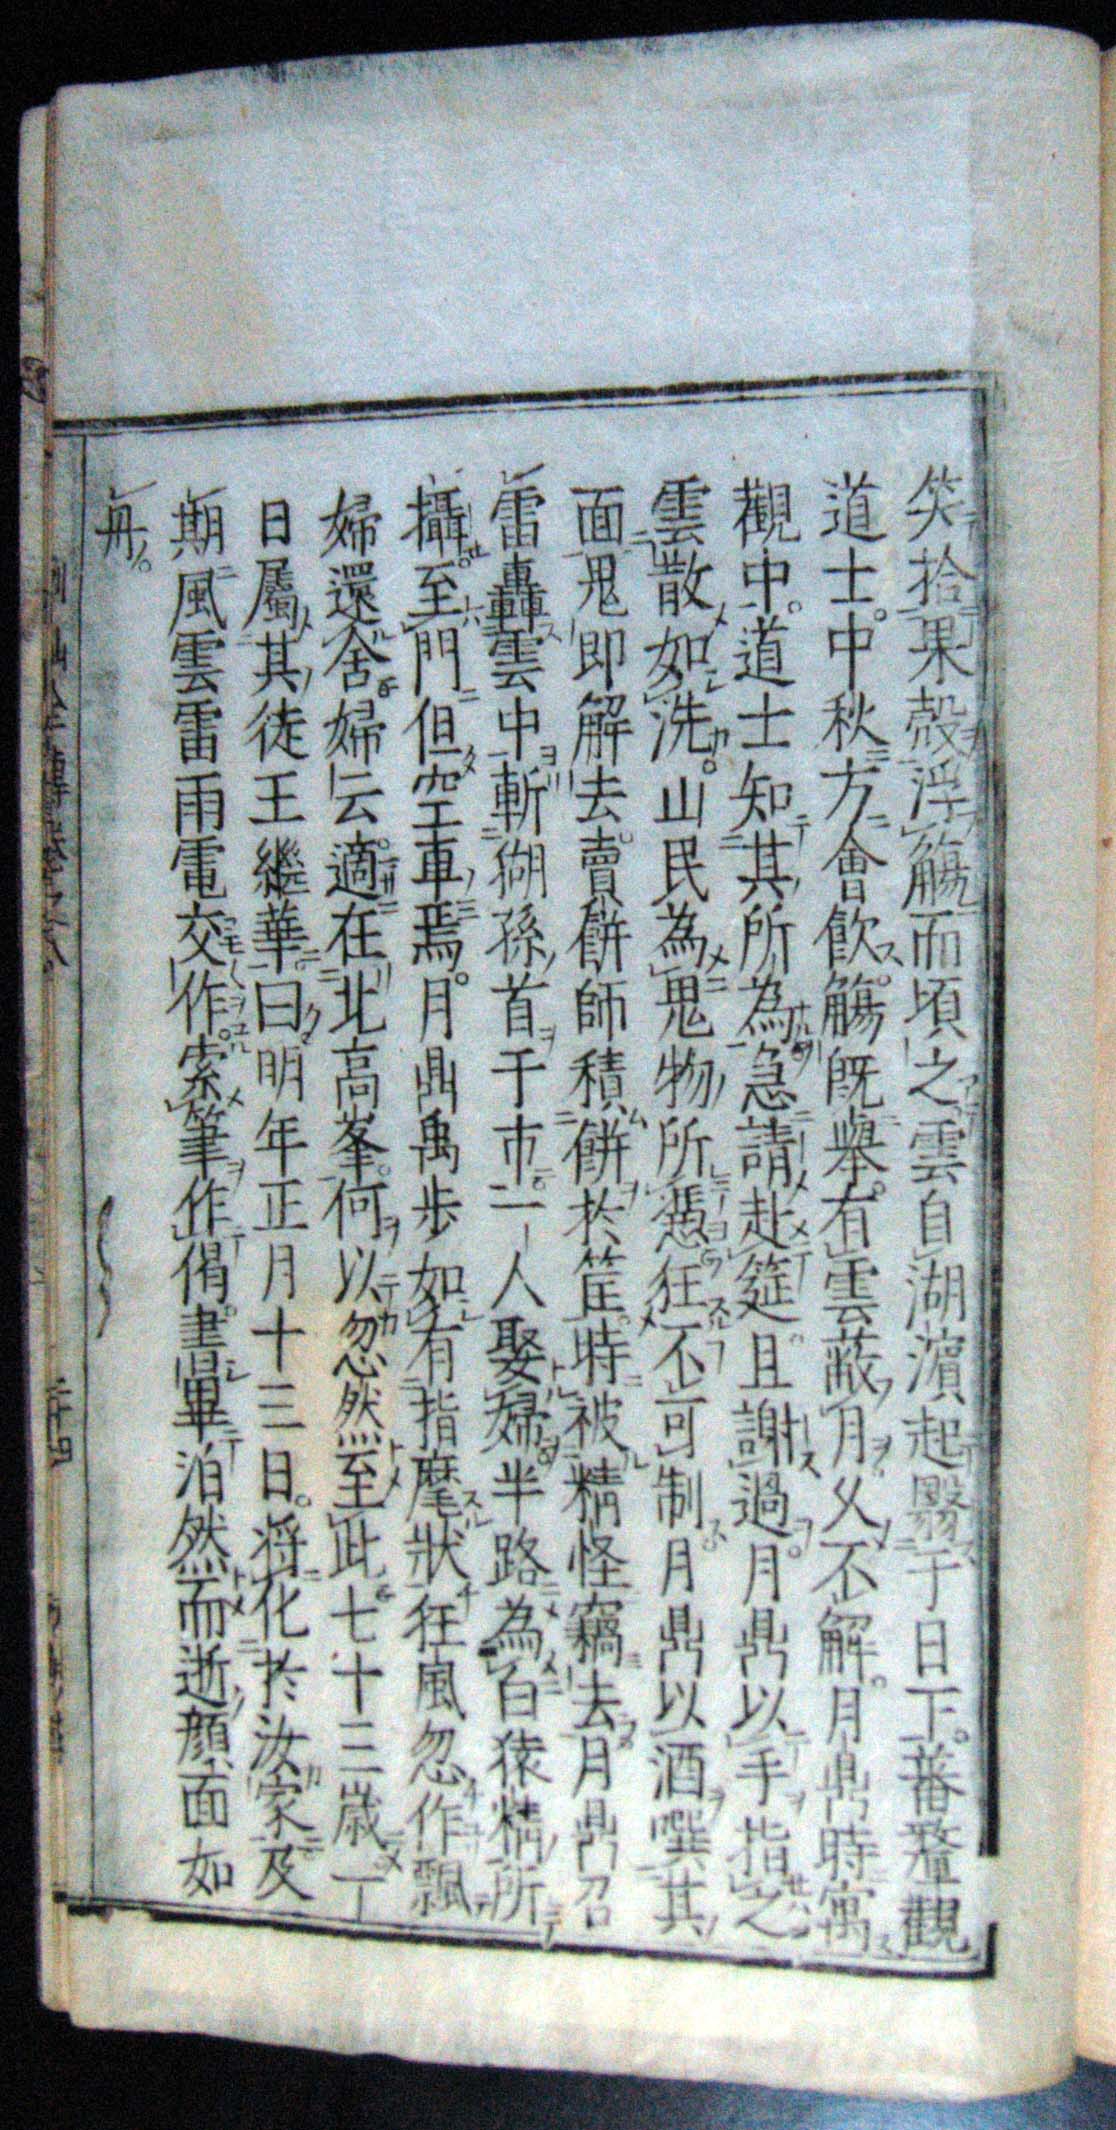 笑拾果殼浮觴而頃之雲自湖濵起翳于日下蕃釐觀
道士中秋方會飲觴既舉有雲蔽月乆不解月鼎時寓
觀中道士知其所為急請赴筵且謝過月鼎以手指之
雲散如洗山民為鬼物所慿狂不可制月鼎以酒噀其
面鬼即解去賣餅師積餅於筐時被精怪竊去月鼎召
雷轟雲中斬猢孫首于市一人娶婦半路為白猿精所
攝至門但空車焉月鼎禹步如有指麾狀狂風忽作飄
婦還舍婦云適在北高峯何以忽然至此七十三歲一
日屬其徒王繼華曰明年正月十三日将化於汝家及
期風雲雷雨電交作索筆作偈書畢泊然而逝顏面如
丹